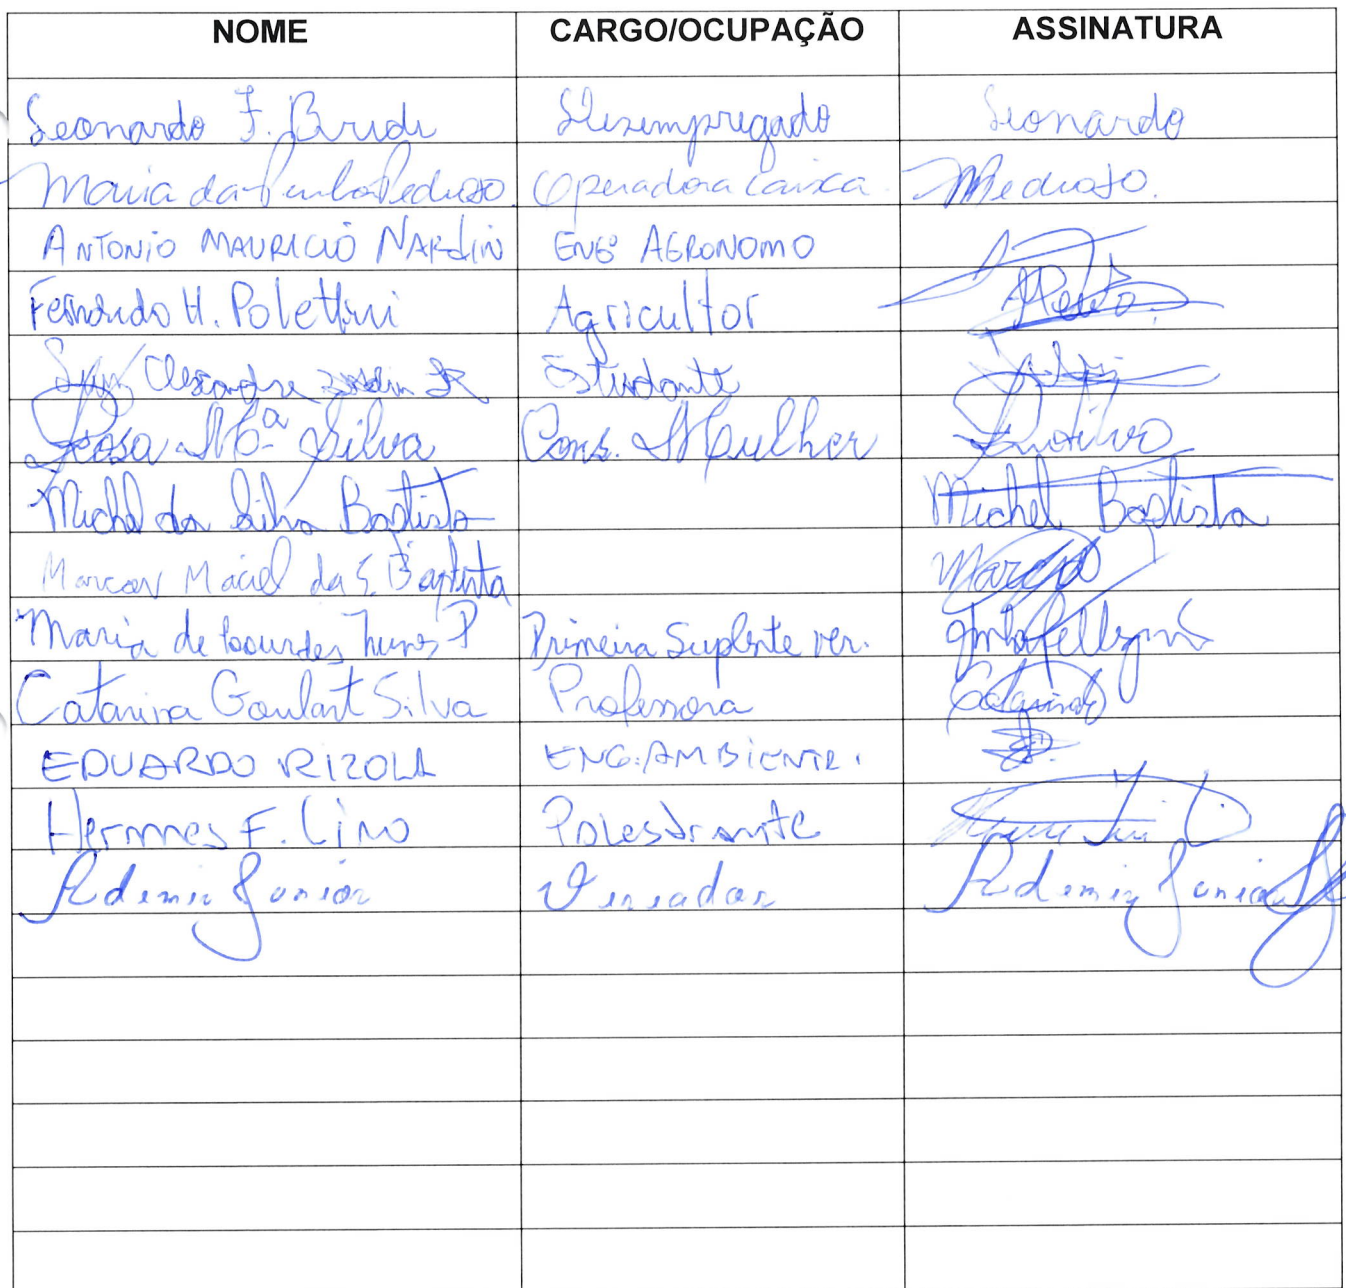 NOME CARGO/OCUPAÇÃO ASSINATURA
Leonardo F. Bridi Desempregado Leonardo
Maria da Penha Pedroso. Operadora Caixa. MPedroso.
ANTONIO MAURICIO NARDIN ENGº AGRONOMO
Fernando H. Polettini Agricultor
Luiz Alexandre JR Estudante
Rosa Mª Silva Cons. Mulher
Michel da Silva Bastista Michel Bastista
Marcos Maciel da S. Baptista
Maria de Lourdes Nunes P Primeira Suplente ver.
Catarina Goulart Silva Professora Catarina
EDUARDO RIZOLA ENG. AMBIENTE.
Hermes F. Lino Palestrante
Ademir Junior Vereador Ademir Junior